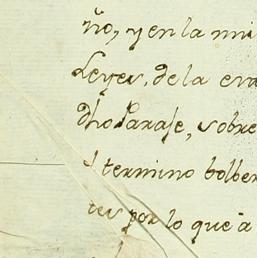 ño, y en la mi
Leyes, de la era
dho Paraje, sobre
el termino bolber
tes por lo que â